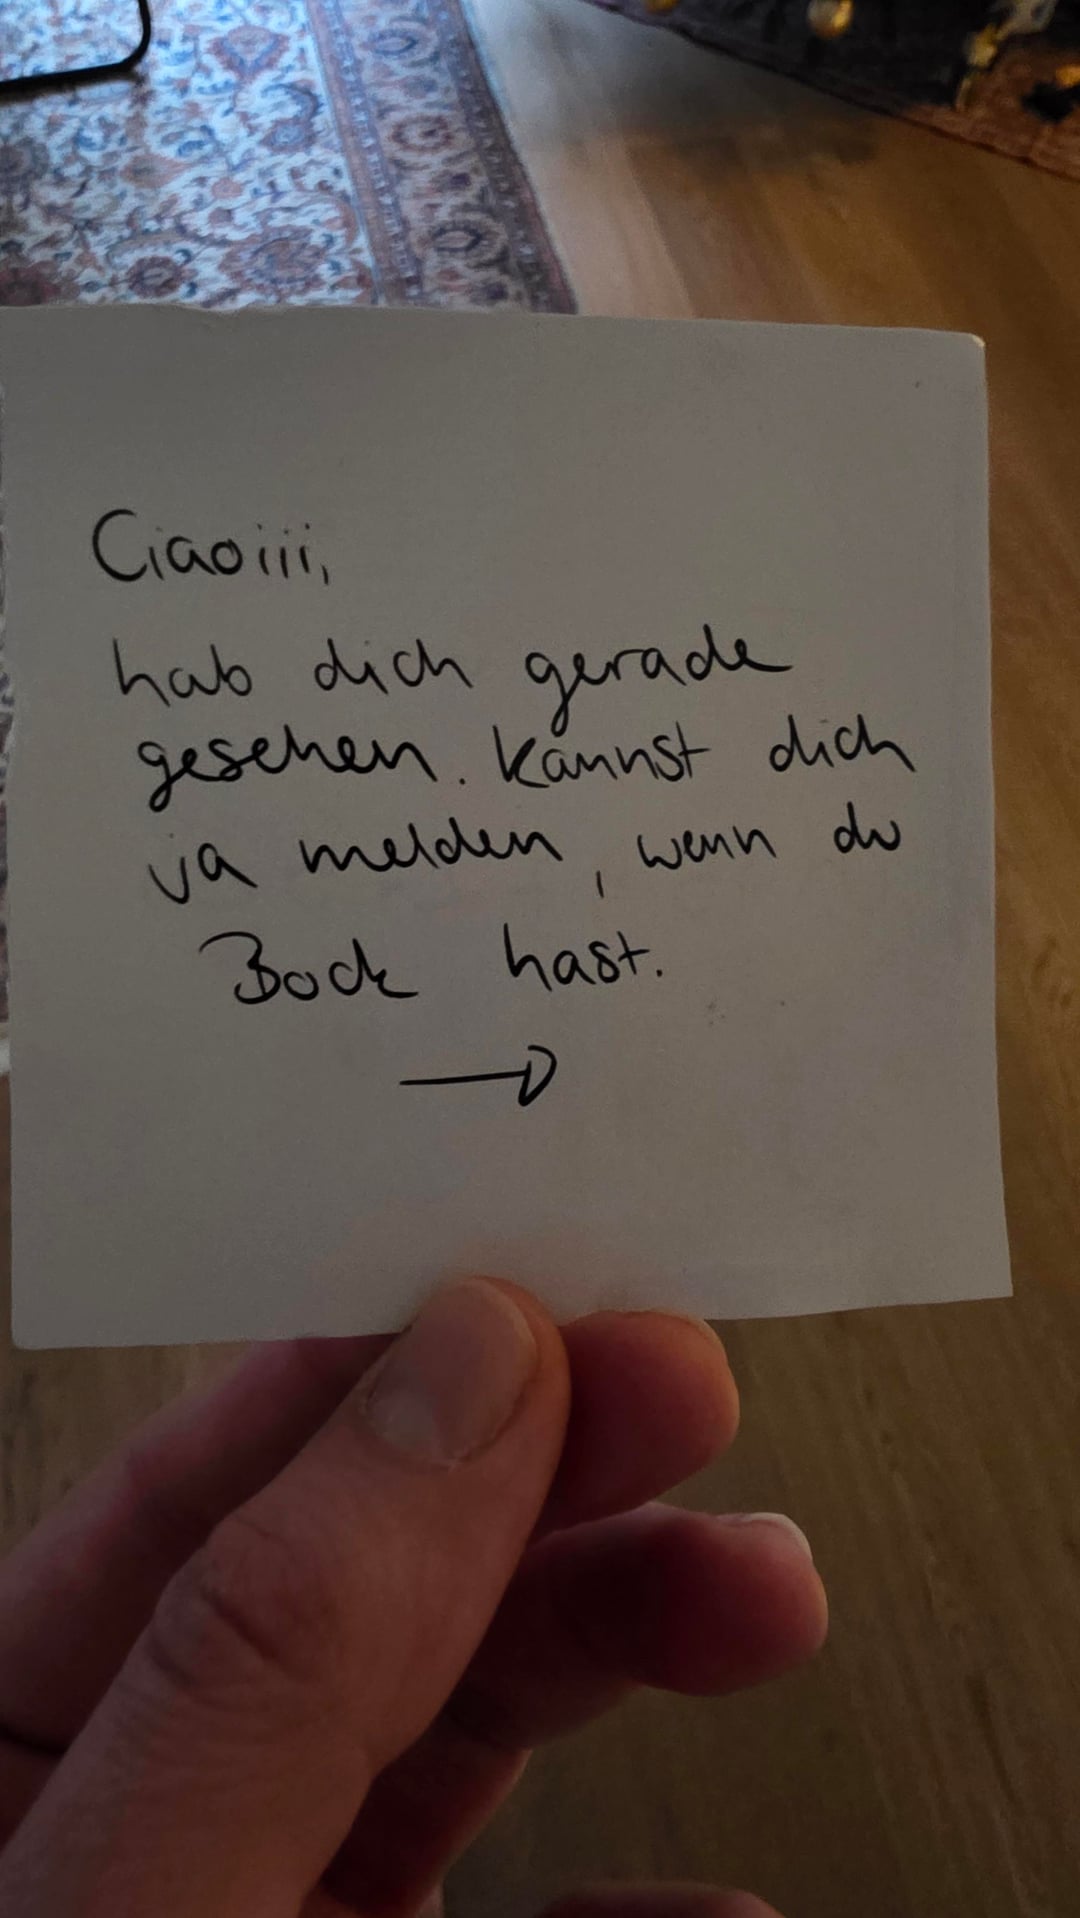 Ciaoiii,
hab dich gerade
gesehen. kannst dich
ja melden, wenn du
Bock hast.
→